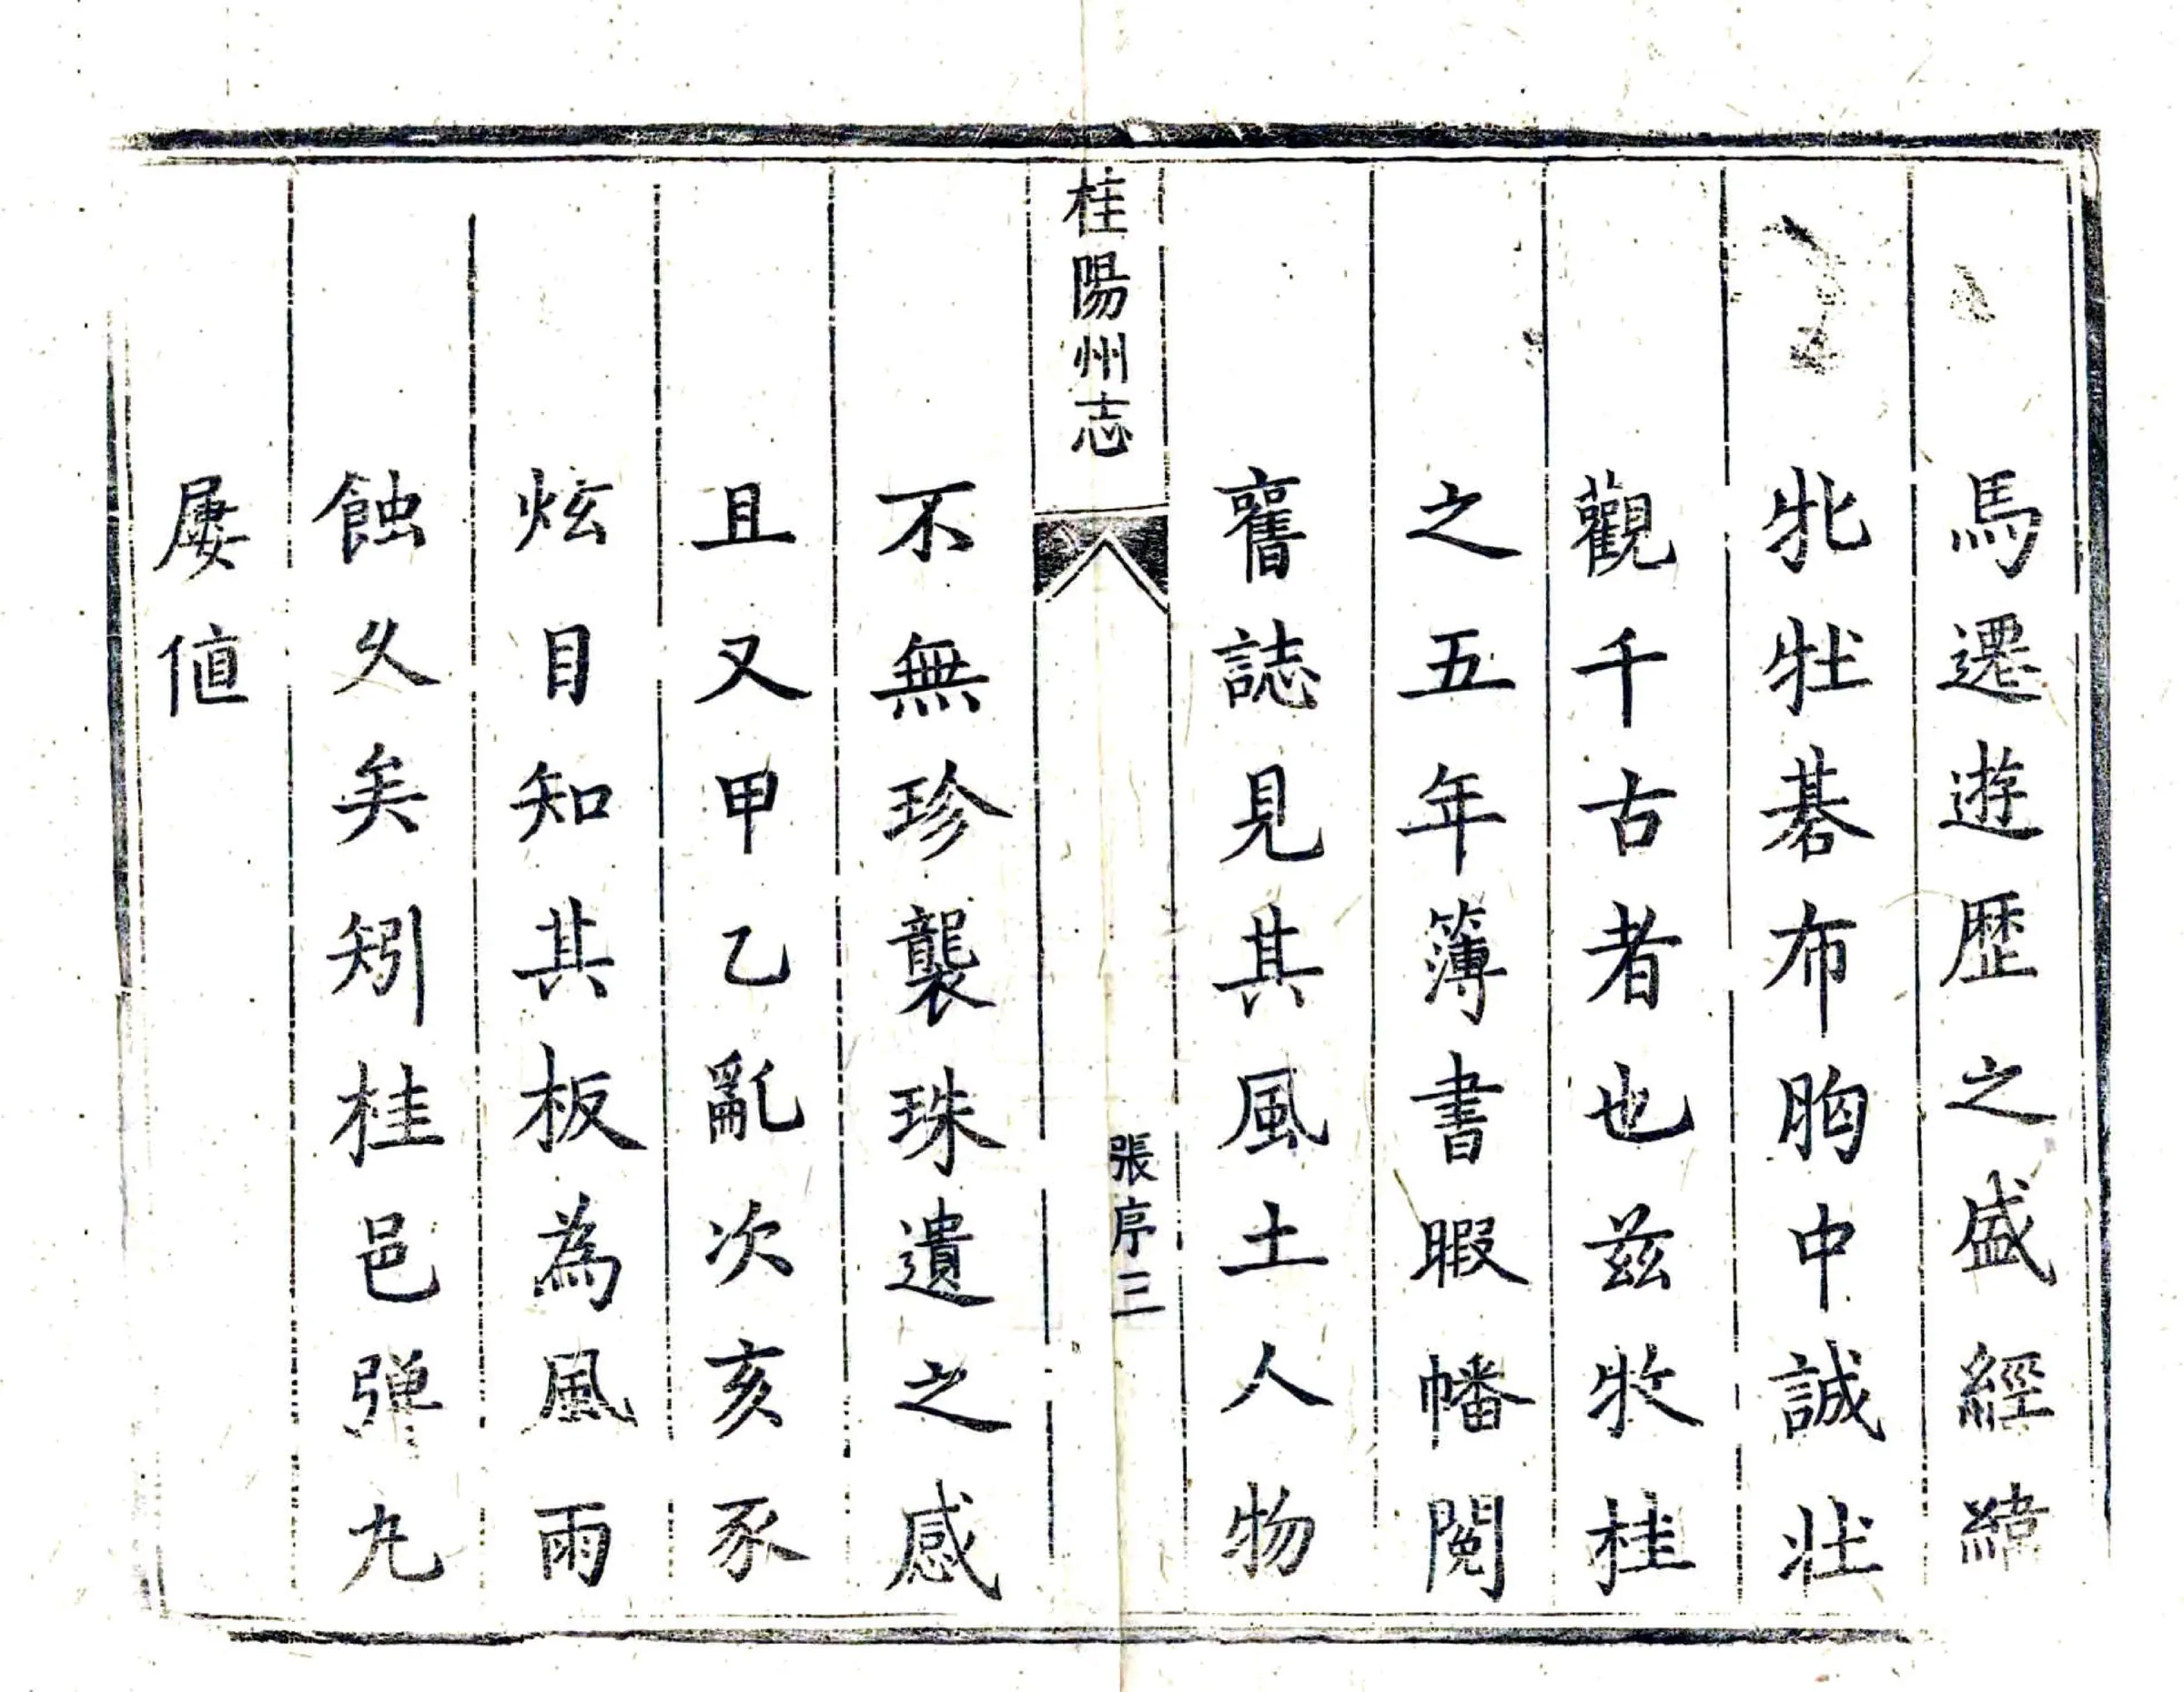 馬遷遊歷之盛經緯
牝牡碁布胸中誠壯
觀千古者也茲牧桂
之五年簿書暇幡閱
舊誌見其風土人物
桂陽州志
張序三
不無珍襲珠遺之感
且又甲乙亂次亥豕
炫目知其板為風雨
蝕久矣矧桂邑弹丸
屢値